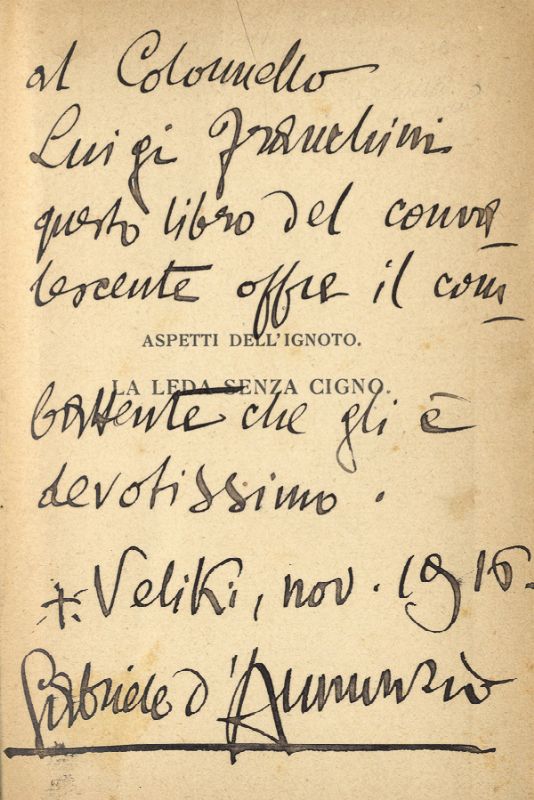 al Colonnello
Luigi Franchini
questo libro del conva
lescente offre il com
ASPETTI DELL'IGNOTO.
LA LEDA SENZA CIGNO.
battente che gli è
devotissimo.
+. Veliki, nov. 1916.
Gabriele d'Annunzio